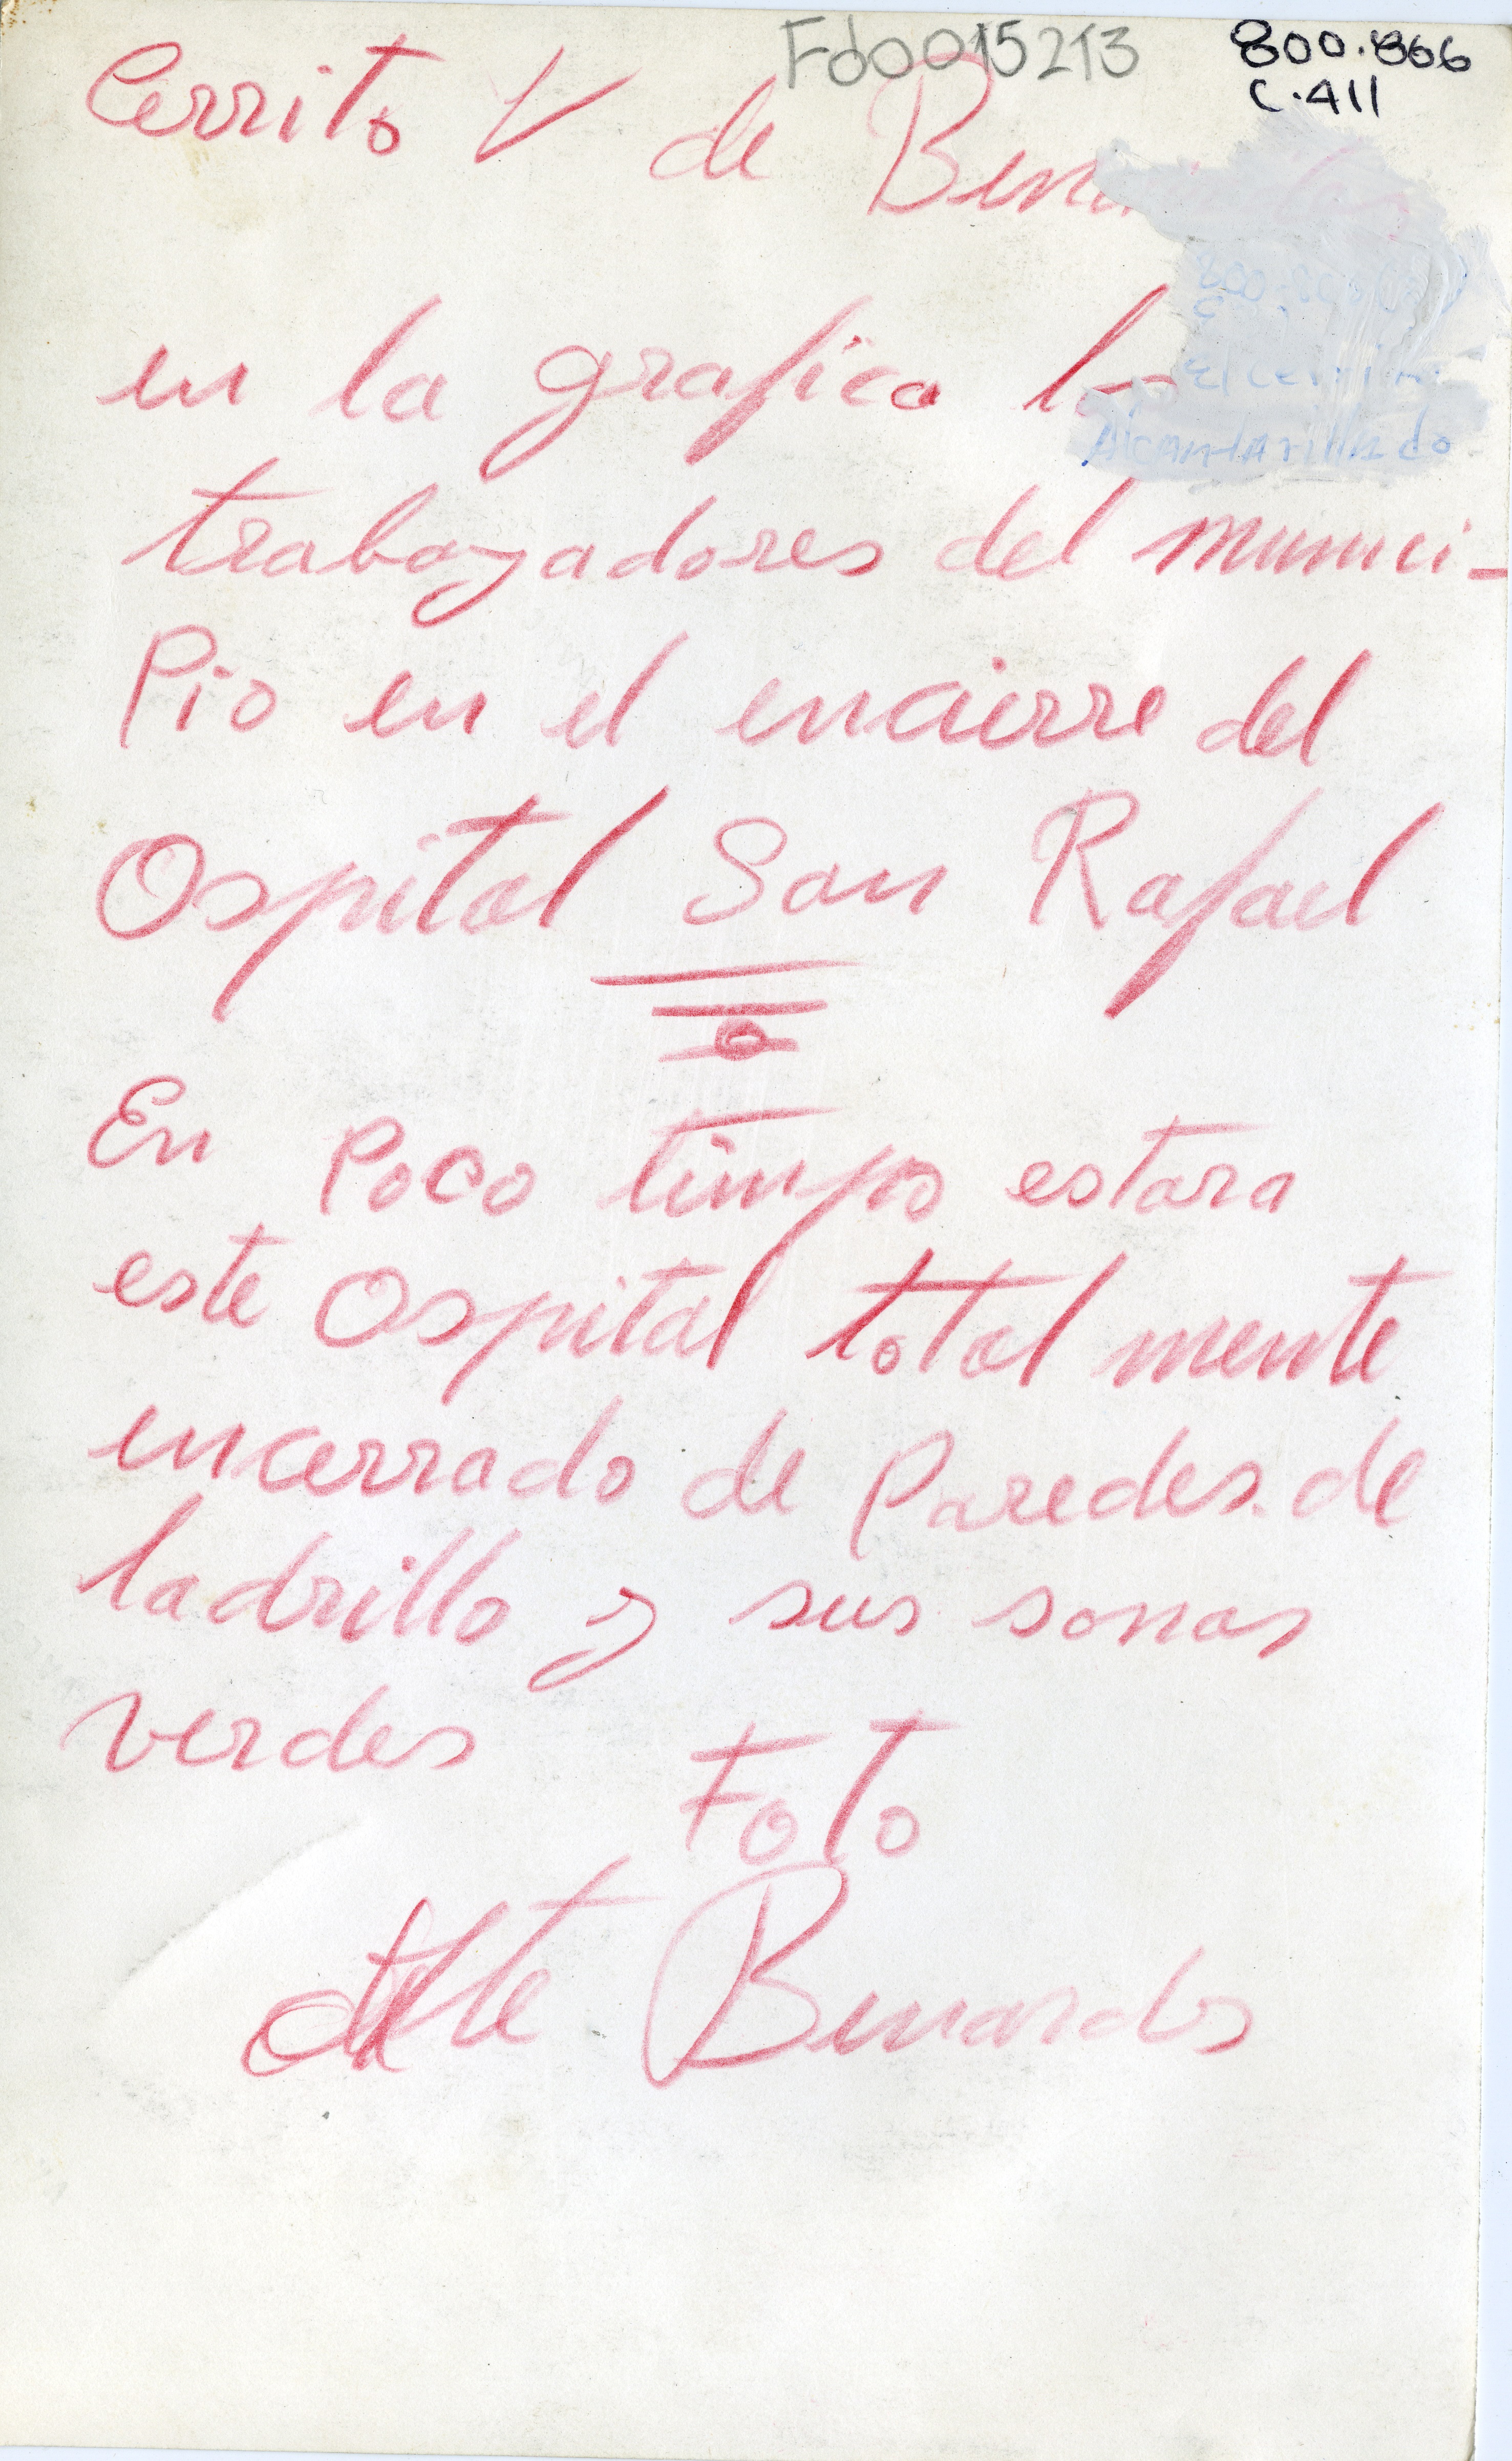 Fd0015213
800.866
C.411
Cerrito V de
en la grafica
Alcantarillado
trabajadores del munici-
Pio en el encierre del
Ospital San Rafael
En Poco timpo estara
este Ospital total mente
encerrado de Paredes de
ladrillo y sus sonas
verdes
Foto